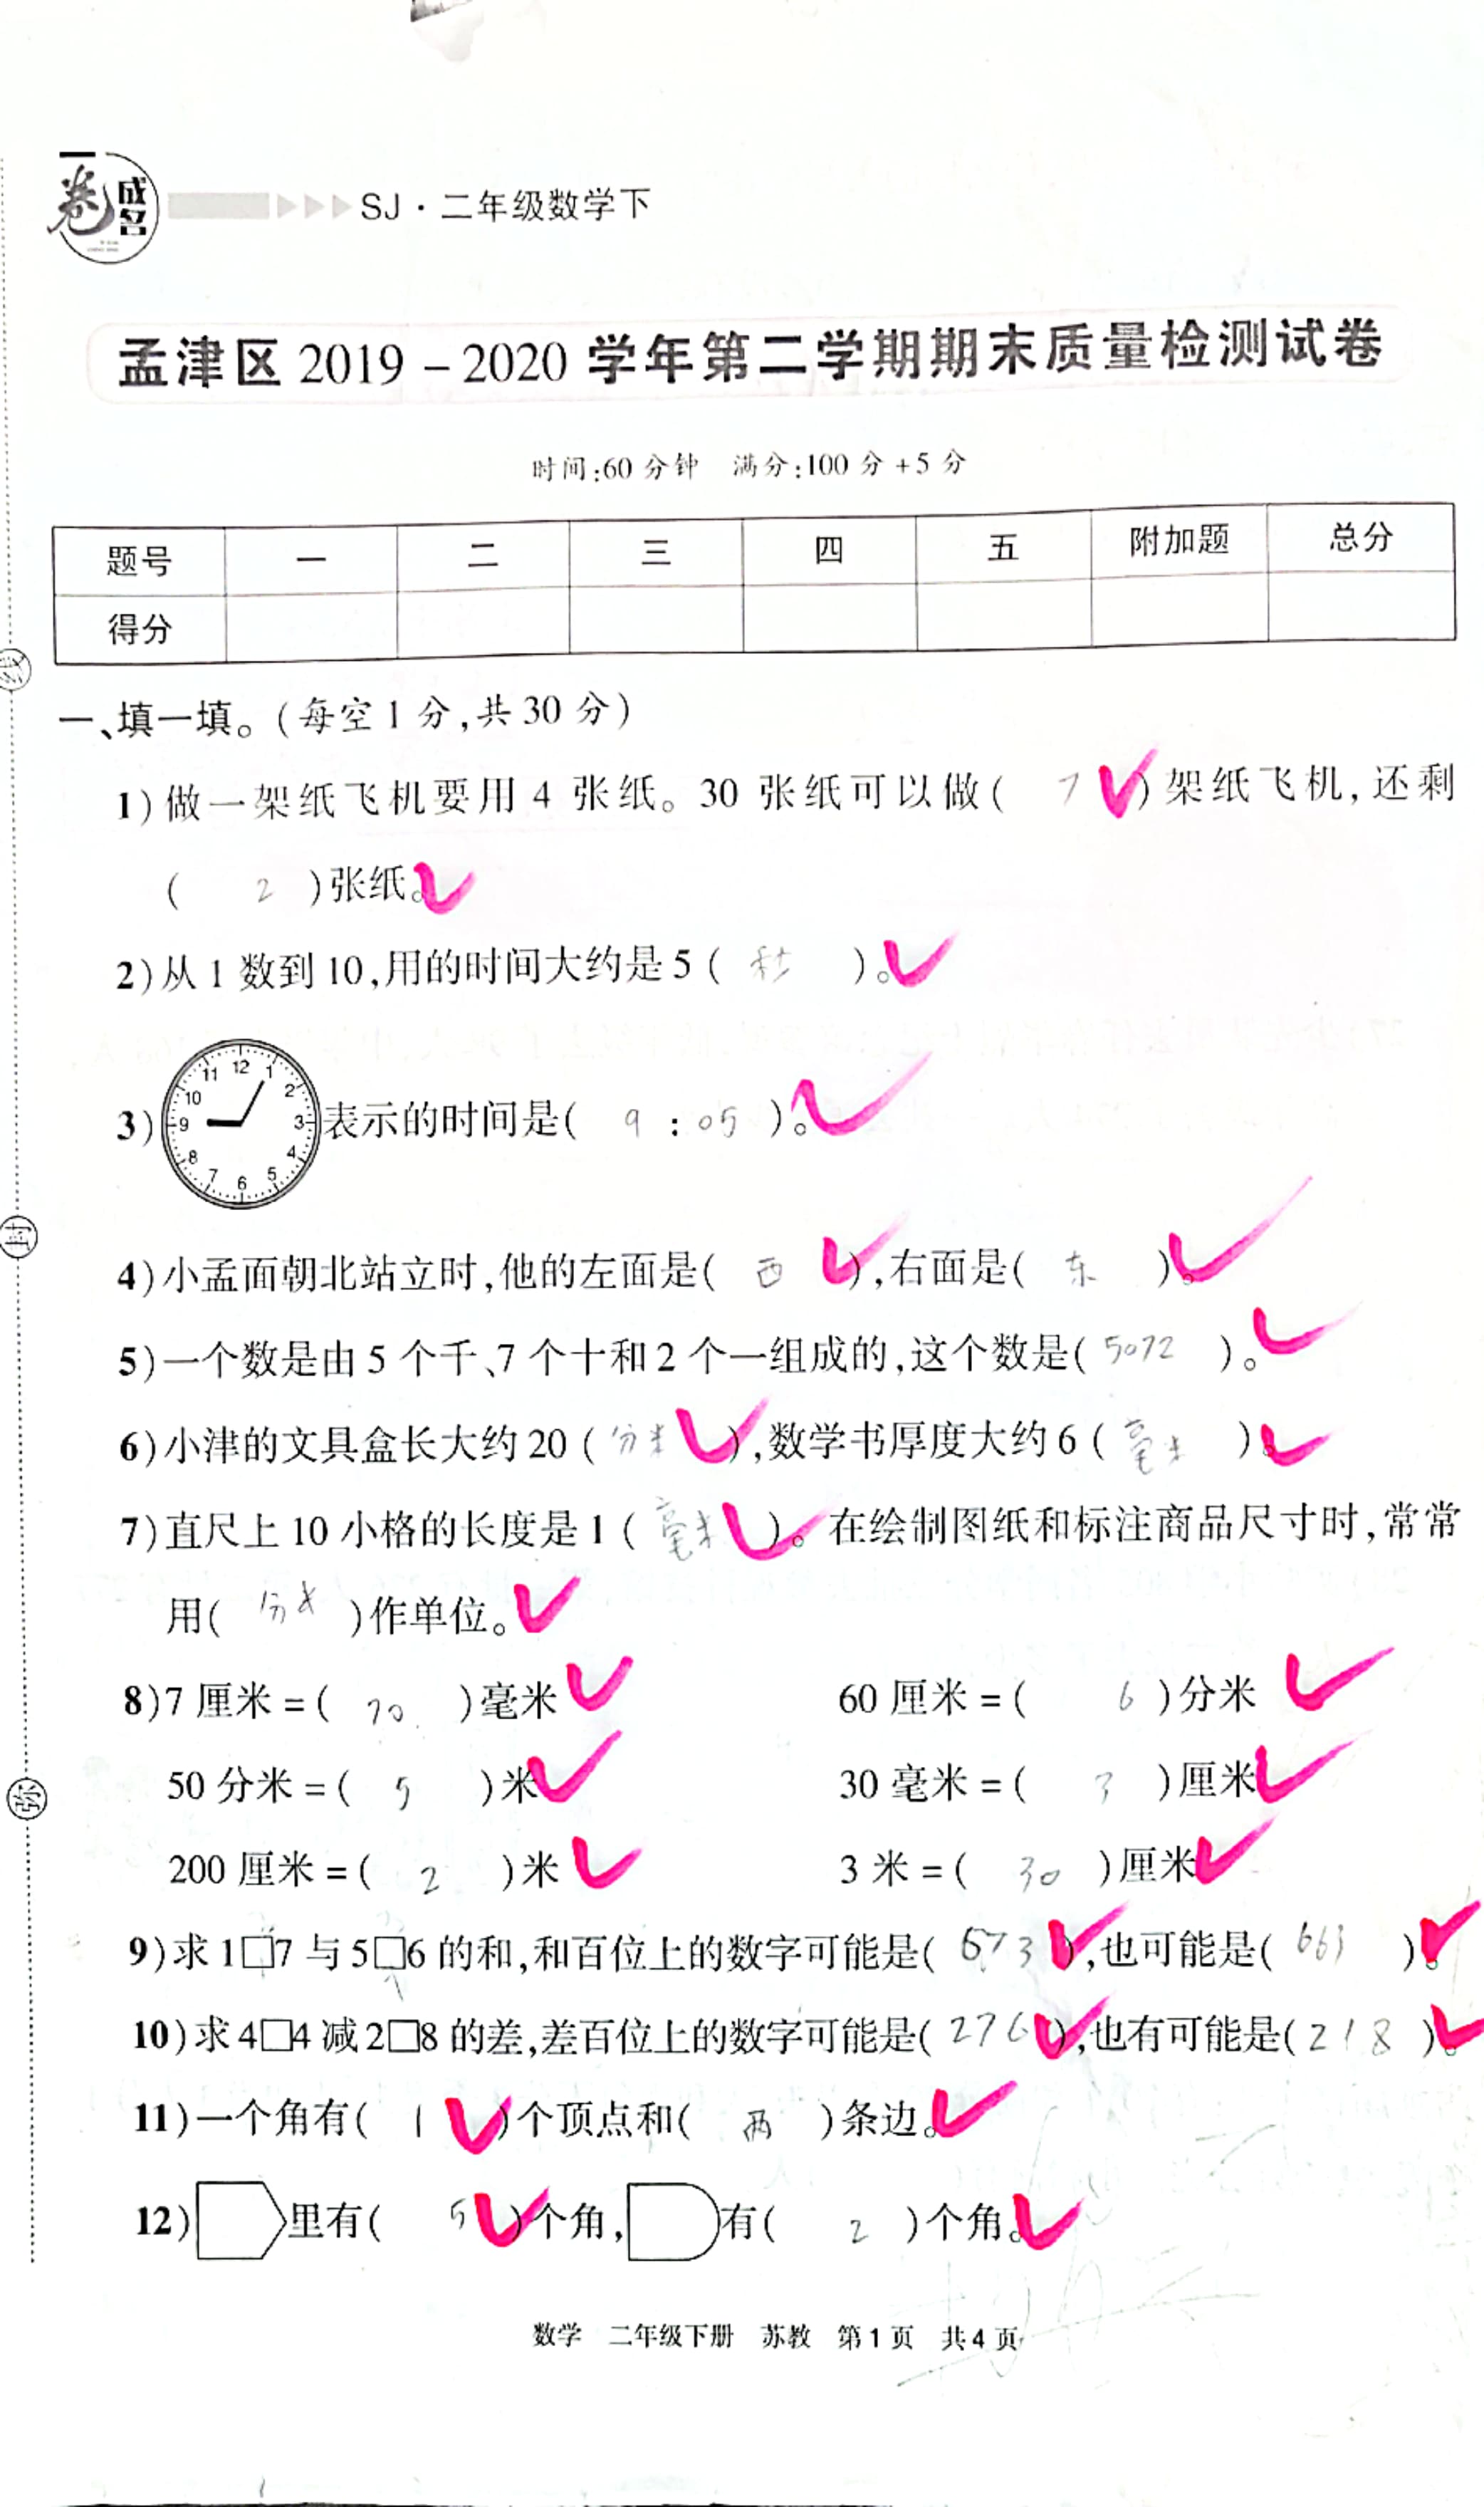 一卷成名 SJ·二年级数学下
孟津区2019-2020学年第二学期期末质量检测试卷
时间:60分钟 满分:100分+5分
题号 一 二 三 四 五 附加题 总分
得分
一、填一填。(每空1分,共30分)
1)做一架纸飞机要用4张纸。30张纸可以做( 7 )架纸飞机,还剩
( 2 )张纸。
2)从1数到10,用的时间大约是5( 秒 )。
12 1 2 3 4 5 6 7 8 9 10 11
3) 表示的时间是( 9:05 )。
4)小孟面朝北站立时,他的左面是( 西 ),右面是( 东 )。
5)一个数是由5个千、7个十和2个一组成的,这个数是( 5072 )。
6)小津的文具盒长大约20( 分米 ),数学书厚度大约6( 毫米 )。
7)直尺上10小格的长度是1( 毫米 )。在绘制图纸和标注商品尺寸时,常常
用( 分米 )作单位。
8)7厘米=( 70 )毫米 60厘米=( 6 )分米
50分米=( 5 )米 30毫米=( 3 )厘米
200厘米=( 2 )米 3米=( 30 )厘米
9)求1□7与5□6的和,和百位上的数字可能是( 673 ),也可能是( 663 )。
10)求4□4减2□8的差,差百位上的数字可能是( 276 ),也有可能是( 218 )。
11)一个角有( 1 )个顶点和( 两 )条边。
12) 里有( 5 )个角, 有( 2 )个角。
数学 二年级下册 苏教 第1页 共4页
线
订
密